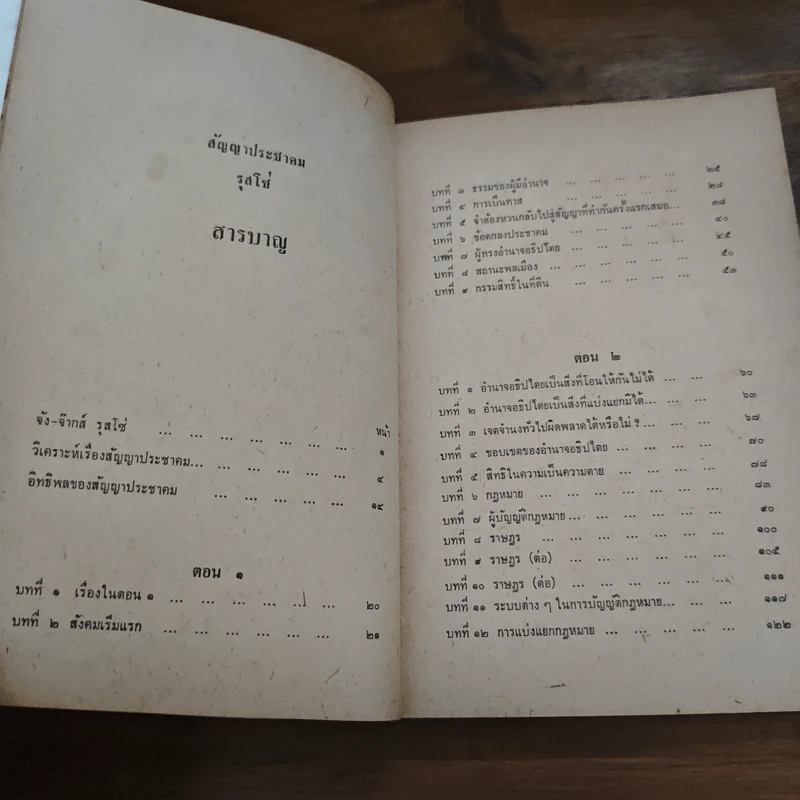 สัญญาประชาคม
รุสโซ่
สารบาญ
หน้า
จัง-จ๊ากส์ รุสโซ่ ... ... ... ... ... ... ... ๑
วิเคราะห์เรื่องสัญญาประชาคม... ... ... ... ... ๔
อิทธิพลของสัญญาประชาคม ... ... ... ... ... ๑๔
ตอน ๑
บทที่ ๑ เรื่องในตอน ๑ ... ... ... ... ... ... ๒๐
บทที่ ๒ สังคมเริ่มแรก ... ... ... ... ... ... ๒๑
บทที่ ๓ ธรรมของผู้มีอำนาจ ... ... ... ... ... ๒๕
บทที่ ๔ การเป็นทาส ... ... ... ... ... ๒๘
บทที่ ๕ จำต้องหวนกลับไปสู่สัญญาที่ทำกันครั้งแรกเสมอ... ๓๘
บทที่ ๖ ข้อตกลงประชาคม ... ... ... ... ... ๔๐
บทที่ ๗ ผู้ทรงอำนาจอธิปไตย ... ... ... ... ... ๔๕
บทที่ ๘ สถานะพลเมือง ... ... ... ... ... ... ๕๐
บทที่ ๙ กรรมสิทธิ์ในที่ดิน ... ... ... ... ... ๕๓
ตอน ๒
บทที่ ๑ อำนาจอธิปไตยเป็นสิ่งที่โอนให้กันไม่ได้ ... ... ๖๐
บทที่ ๒ อำนาจอธิปไตยเป็นสิ่งที่แบ่งแยกมิได้... ... ... ๖๓
บทที่ ๓ เจตจำนงทั่วไปผิดพลาดได้หรือไม่ ? ... ... ... ๖๗
บทที่ ๔ ขอบเขตของอำนาจอธิปไตย ... ... ... ... ๗๐
บทที่ ๕ สิทธิในความเป็นความตาย ... ... ... ... ๗๘
บทที่ ๖ กฎหมาย ... ... ... ... ... ... ๘๓
บทที่ ๗ ผู้บัญญัติกฎหมาย... ... ... ... ... ๙๐
บทที่ ๘ ราษฎร ... ... ... ... ... ... ๑๐๐
บทที่ ๙ ราษฎร (ต่อ) ... ... ... ... ... ๑๐๕
บทที่ ๑๐ ราษฎร (ต่อ) ... ... ... ... ... ๑๑๑
บทที่ ๑๑ ระบบต่าง ๆ ในการบัญญัติกฎหมาย... ... ... ๑๑๗
บทที่ ๑๒ การแบ่งแยกกฎหมาย ... ... ... ... ... ๑๒๒